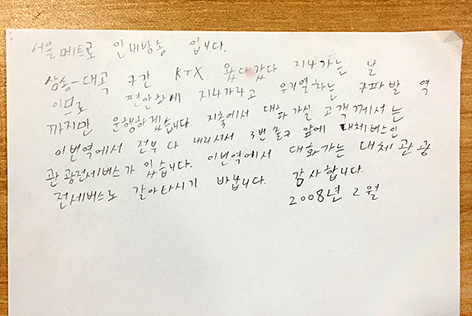 서울메트로 안내방송 입니다.
삼송-대곡 구간 KTX 왔다갔다 지나가는 분
이므로 편안하게 지나가라고 우리열차는 구파발 역
까지만 운행하겠습니다. 지축에서 대화 가실 고객께서는
이번역에서 전부 다 내리셔서 3번 출구 앞에 대체버스인
관광전세버스가 있습니다. 이번역에서 대화가는 대체 관광
전세버스로 갈아타시기 바랍니다. 감사합니다.
2008년 2월